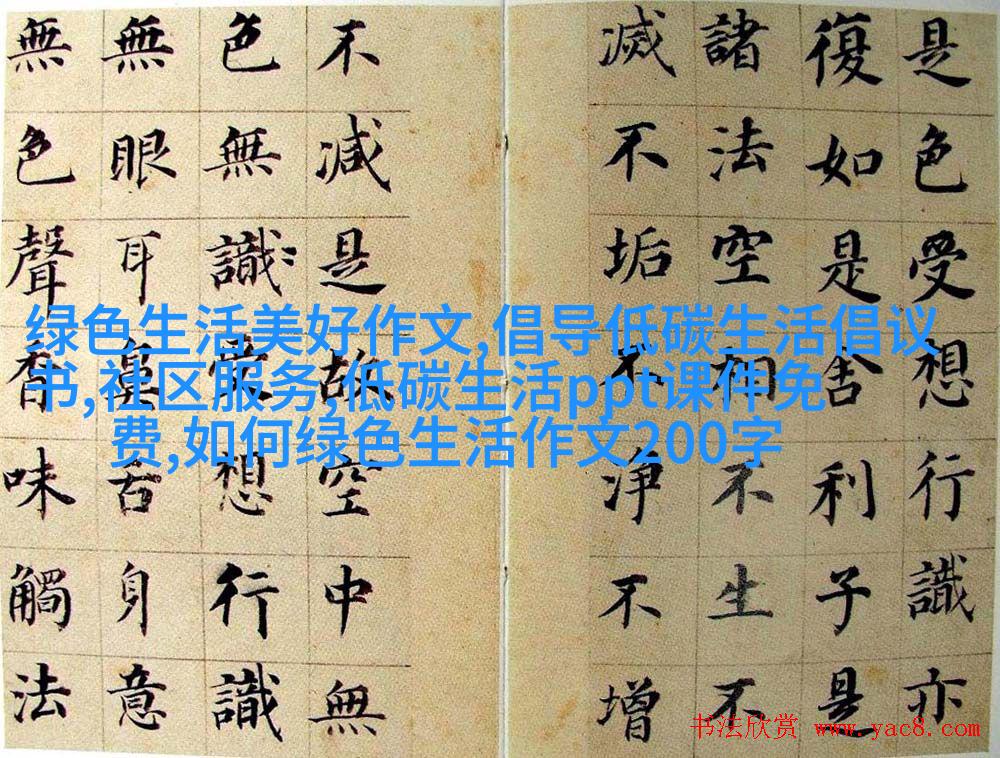 是色受想行識亦
復如是舍利子是
諸法空相不生不
滅不垢不淨不增
不減是故空中無
色無識受想行識
無眼耳鼻舌身意
無色聲香味觸法
绿色生活美好作文,倡导低碳生活倡议
书,社区服务,低碳生活ppt课件免
费,如何绿色生活作文200字
书法欣赏 www.yac8.com